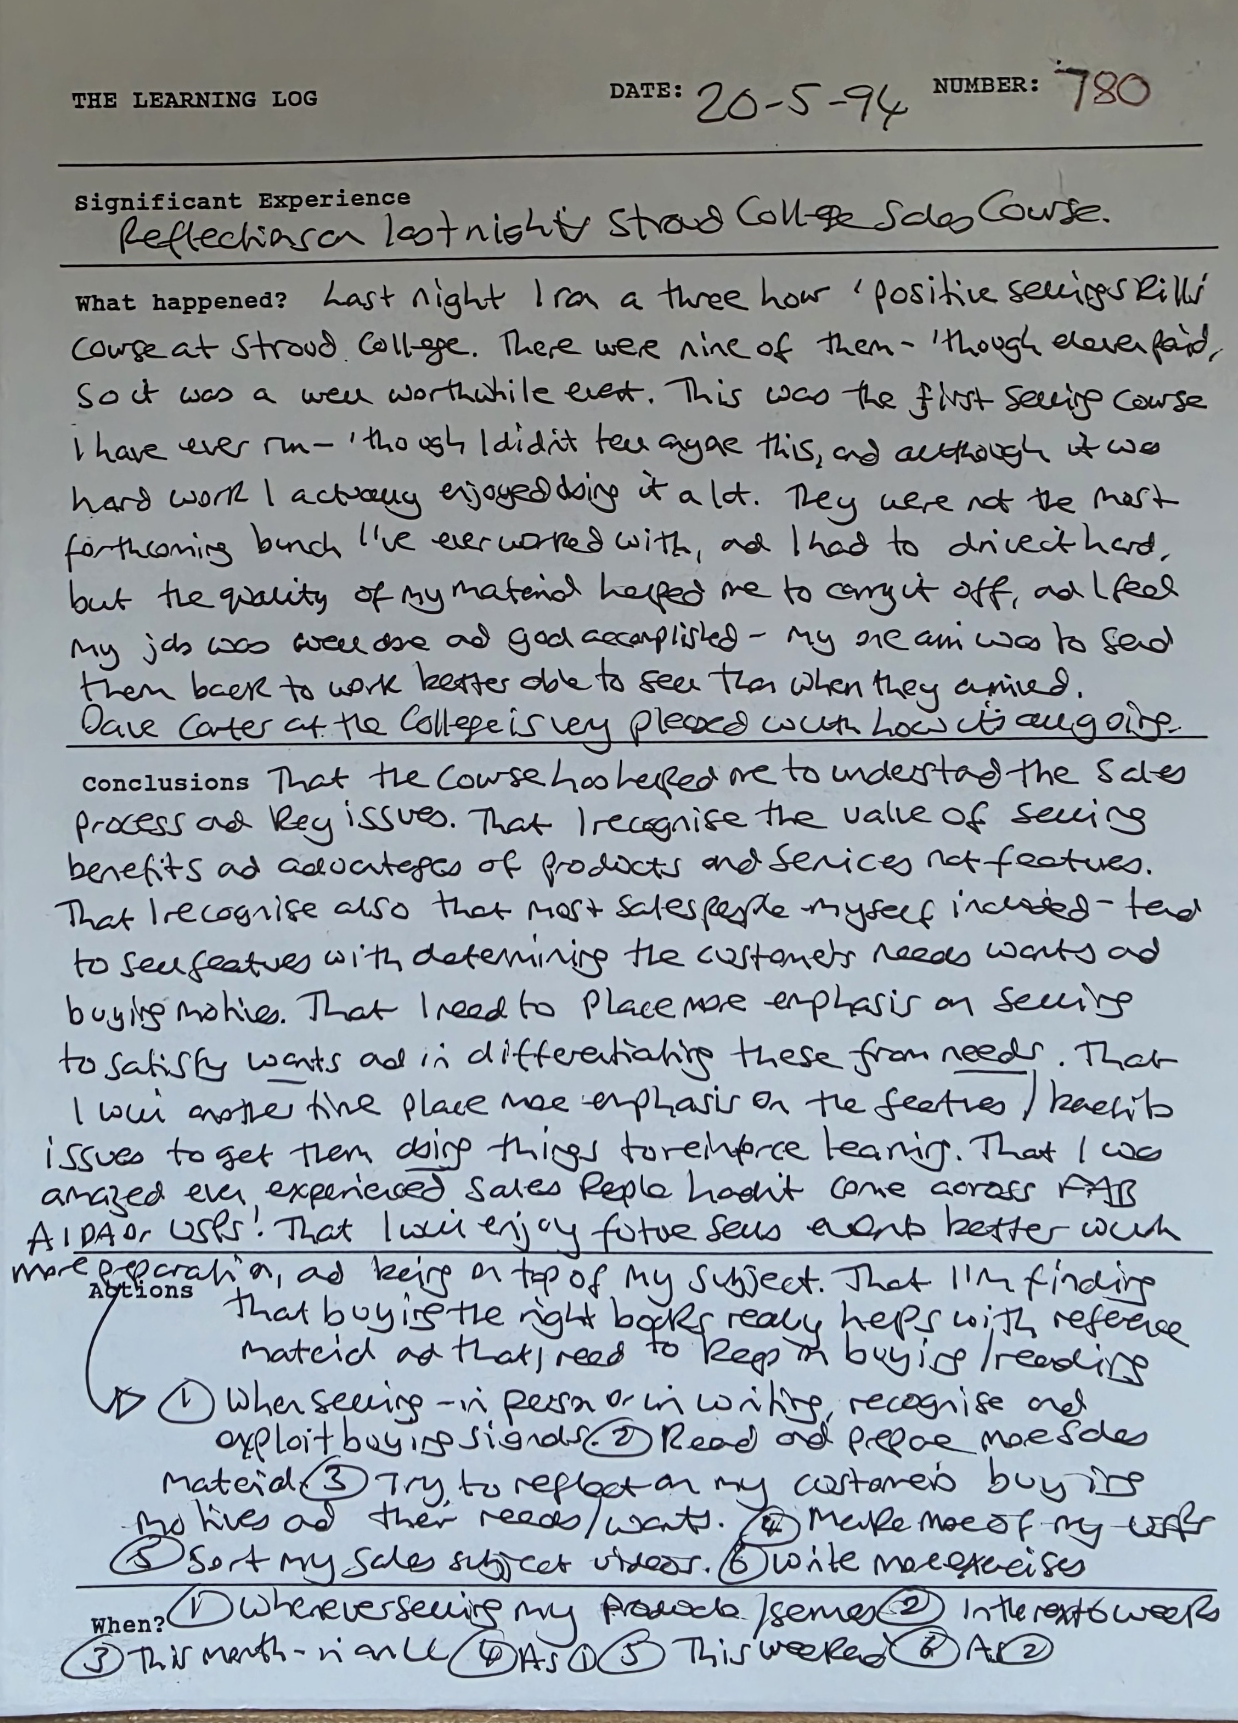 THE LEARNING LOG DATE: 20-5-94 NUMBER: 780
Significant Experience
Reflections on last night's Stroud College Sales Course.
What happened? Last night I ran a three hour 'positive selling skills'
course at Stroud College. There were nine of them - 'though eleven paid,
So it was a well worthwhile event. This was the first selling course
I have ever run - 'though I didn't tell anyone this, and although it was
hard work I actually enjoyed doing it a lot. They were not the most
forthcoming bunch I've ever worked with, and I had to drive it hard,
but the quality of my material helped me to carry it off, and I feel
my job was well done and goal accomplished - my one aim was to send
them back to work better able to sell than when they arrived.
Dave Carter at the College is very pleased with how it's all going.
Conclusions That the course has helped me to understand the sales
process and key issues. That I recognise the value of selling
benefits and advantages of products and services not features.
That I recognise also that most salespeople - myself included - tend
to sell features with determining the customer's needs wants and
buying motives. That I need to place more emphasis on selling
to satisfy wants and in differentiating these from needs. That
I will another time place more emphasis on the features/benefits
issues to get them doing things to reinforce learning. That I was
amazed even experienced Sales People hadn't come across FAB
AIDA or USPs! That I will enjoy future sales events better with
more preparation, and being on top of my subject. That I'm finding
Actions
that buying the right books really helps with reference
material and that I need to keep on buying/reading
① When selling - in person or in writing, recognise and
exploit buying signals. ② Read and prepare more sales
material. ③ Try to reflect on my customer's buying
motives and their needs/wants. ④ Make more of my USPs
⑤ Sort my sales subject videos. ⑥ Write more exercises
When? ① Whenever selling my products/services ② In the next 6 weeks
③ This month - in an LL ④ As ① ⑤ This weekend ⑥ As ②